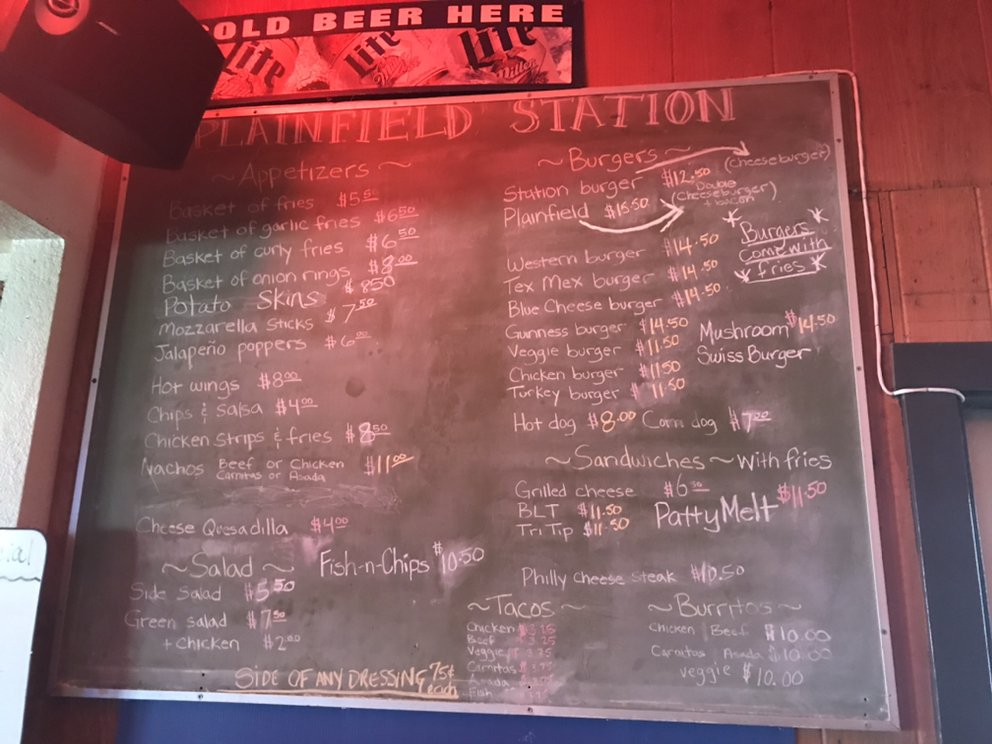 COLD BEER HERE
Lite Lite Lite
PLAINFIELD STATION
~ Appetizers ~
Basket of fries $5.50
Basket of garlic fries $6.50
Basket of curly fries $6.50
Basket of onion rings $8.00
Potato Skins $8.50
Mozzarella Sticks $7.50
Jalapeño poppers $6.00
Hot wings $8.00
Chips & Salsa $4.00
Chicken Strips & fries $8.50
Nachos Beef or Chicken $11.00
Carnitas or Asada
Cheese Quesadilla $4.00
~ Salad ~
Side Salad $5.50
Green salad $7.50
+ chicken $2.00
Fish-n-Chips $10.50
SIDE OF ANY DRESSING 75¢
each
~ Burgers ~
Station burger $12.50 (cheeseburger)
Plainfield $15.50 Double
(Cheeseburger)
+ bacon
Burgers
Come with
fries
Western burger $14.50
Tex Mex burger $14.50
Blue Cheese burger $14.50
Gunness burger $14.50
Veggie burger $11.50
Chicken burger $11.50
Turkey burger $11.50
Mushroom $14.50
Swiss Burger
Hot dog $8.00 Corn dog $7.00
~ Sandwiches ~ with fries
Grilled cheese
BLT $11.50
Tri Tip $11.50
Patty Melt $11.50
Philly Cheese Steak $10.50
~ Tacos ~
Chicken
Beef
Veggie
Carnitas
Asada
Fish
~ Burritos ~
Chicken Beef $10.00
Carnitas Asada $10.00
veggie $10.00